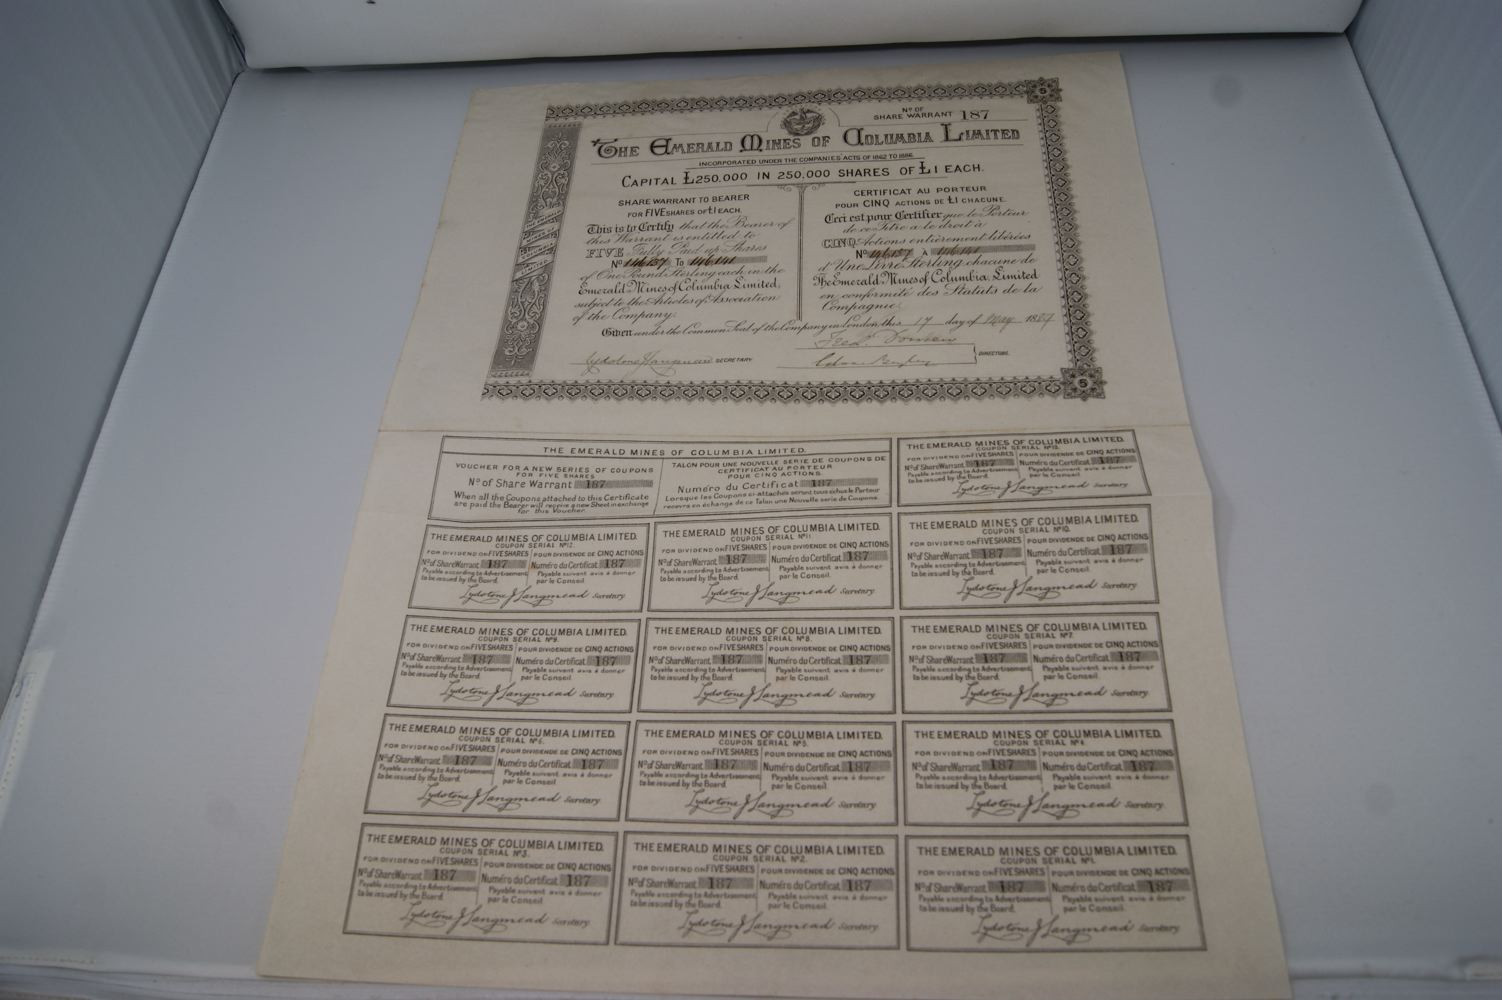 5
Nº OF
SHARE WARRANT 187
THE EMERALD MINES OF COLUMBIA LIMITED
INCORPORATED UNDER THE COMPANIES ACTS OF 1862 TO 1886.
CAPITAL £250,000 IN 250,000 SHARES OF £1 EACH.
SHARE WARRANT TO BEARER
FOR FIVE SHARES OF £1 EACH.
This is to Certify that the Bearer of
this Warrant is entitled to
FIVE Fully Paid up Shares
Nº 146137 To 146141
of One Pound Sterling each in the
Emerald Mines of Columbia Limited,
subject to the Articles of Association
of the Company.
CERTIFICAT AU PORTEUR
POUR CINQ ACTIONS DE £1 CHACUNE.
Ceci est pour Certifier que le Porteur
de ce Titre a le droit à
CINQ Actions entièrement libérées
Nº 146137 À 146141
d'Une Livre Sterling chacune de
The Emerald Mines of Columbia, Limited
en conformité des Statuts de la
Compagnie.
Given under the Common Seal of the Company in London this 17 day of May 1887
Lydstone J Langmead SECRETARY
DIRECTORS.
5
THE EMERALD MINES OF COLUMBIA LIMITED.
VOUCHER FOR A NEW SERIES OF COUPONS
FOR FIVE SHARES
Nº of Share Warrant 187
When all the Coupons attached to this Certificate
are paid the Bearer will receive a new Sheet in exchange
for this Voucher.
TALON POUR UNE NOUVELLE SERIE DE COUPONS DE
CERTIFICAT AU PORTEUR
POUR CINQ ACTIONS.
Numéro du Certificat 187
Lorsque les Coupons ci-attachés seront tous échus le Porteur
recevra en échange de ce Talon une Nouvelle serie de Coupons.
THE EMERALD MINES OF COLUMBIA LIMITED.
COUPON SERIAL Nº13.
FOR DIVIDEND ON FIVE SHARES POUR DIVIDENDE DE CINQ ACTIONS
Nº of Share Warrant 187 Numéro du Certificat 187
Payable according to Advertisement Payable suivant avis à donner
to be issued by the Board. par le Conseil.
Lydstone J Langmead Secretary
THE EMERALD MINES OF COLUMBIA LIMITED.
COUPON SERIAL Nº12.
FOR DIVIDEND ON FIVE SHARES POUR DIVIDENDE DE CINQ ACTIONS
Nº of Share Warrant 187 Numéro du Certificat 187
Payable according to Advertisement Payable suivant avis à donner
to be issued by the Board. par le Conseil.
Lydstone J Langmead Secretary
THE EMERALD MINES OF COLUMBIA LIMITED.
COUPON SERIAL Nº11.
FOR DIVIDEND ON FIVE SHARES POUR DIVIDENDE DE CINQ ACTIONS
Nº of Share Warrant 187 Numéro du Certificat 187
Payable according to Advertisement Payable suivant avis à donner
to be issued by the Board. par le Conseil.
Lydstone J Langmead Secretary
THE EMERALD MINES OF COLUMBIA LIMITED.
COUPON SERIAL Nº10.
FOR DIVIDEND ON FIVE SHARES POUR DIVIDENDE DE CINQ ACTIONS
Nº of Share Warrant 187 Numéro du Certificat 187
Payable according to Advertisement Payable suivant avis à donner
to be issued by the Board. par le Conseil.
Lydstone J Langmead Secretary
THE EMERALD MINES OF COLUMBIA LIMITED.
COUPON SERIAL Nº9.
FOR DIVIDEND ON FIVE SHARES POUR DIVIDENDE DE CINQ ACTIONS
Nº of Share Warrant 187 Numéro du Certificat 187
Payable according to Advertisement Payable suivant avis à donner
to be issued by the Board. par le Conseil.
Lydstone J Langmead Secretary
THE EMERALD MINES OF COLUMBIA LIMITED.
COUPON SERIAL Nº8.
FOR DIVIDEND ON FIVE SHARES POUR DIVIDENDE DE CINQ ACTIONS
Nº of Share Warrant 187 Numéro du Certificat 187
Payable according to Advertisement Payable suivant avis à donner
to be issued by the Board. par le Conseil.
Lydstone J Langmead Secretary
THE EMERALD MINES OF COLUMBIA LIMITED.
COUPON SERIAL Nº7.
FOR DIVIDEND ON FIVE SHARES POUR DIVIDENDE DE CINQ ACTIONS
Nº of Share Warrant 187 Numéro du Certificat 187
Payable according to Advertisement Payable suivant avis à donner
to be issued by the Board. par le Conseil.
Lydstone J Langmead Secretary
THE EMERALD MINES OF COLUMBIA LIMITED.
COUPON SERIAL Nº6.
FOR DIVIDEND ON FIVE SHARES POUR DIVIDENDE DE CINQ ACTIONS
Nº of Share Warrant 187 Numéro du Certificat 187
Payable according to Advertisement Payable suivant avis à donner
to be issued by the Board. par le Conseil.
Lydstone J Langmead Secretary
THE EMERALD MINES OF COLUMBIA LIMITED.
COUPON SERIAL Nº5.
FOR DIVIDEND ON FIVE SHARES POUR DIVIDENDE DE CINQ ACTIONS
Nº of Share Warrant 187 Numéro du Certificat 187
Payable according to Advertisement Payable suivant avis à donner
to be issued by the Board. par le Conseil.
Lydstone J Langmead Secretary
THE EMERALD MINES OF COLUMBIA LIMITED.
COUPON SERIAL Nº4.
FOR DIVIDEND ON FIVE SHARES POUR DIVIDENDE DE CINQ ACTIONS
Nº of Share Warrant 187 Numéro du Certificat 187
Payable according to Advertisement Payable suivant avis à donner
to be issued by the Board. par le Conseil.
Lydstone J Langmead Secretary
THE EMERALD MINES OF COLUMBIA LIMITED.
COUPON SERIAL Nº3.
FOR DIVIDEND ON FIVE SHARES POUR DIVIDENDE DE CINQ ACTIONS
Nº of Share Warrant 187 Numéro du Certificat 187
Payable according to Advertisement Payable suivant avis à donner
to be issued by the Board. par le Conseil.
Lydstone J Langmead Secretary
THE EMERALD MINES OF COLUMBIA LIMITED.
COUPON SERIAL Nº2.
FOR DIVIDEND ON FIVE SHARES POUR DIVIDENDE DE CINQ ACTIONS
Nº of Share Warrant 187 Numéro du Certificat 187
Payable according to Advertisement Payable suivant avis à donner
to be issued by the Board. par le Conseil.
Lydstone J Langmead Secretary
THE EMERALD MINES OF COLUMBIA LIMITED.
COUPON SERIAL Nº1.
FOR DIVIDEND ON FIVE SHARES POUR DIVIDENDE DE CINQ ACTIONS
Nº of Share Warrant 187 Numéro du Certificat 187
Payable according to Advertisement Payable suivant avis à donner
to be issued by the Board. par le Conseil.
Lydstone J Langmead Secretary